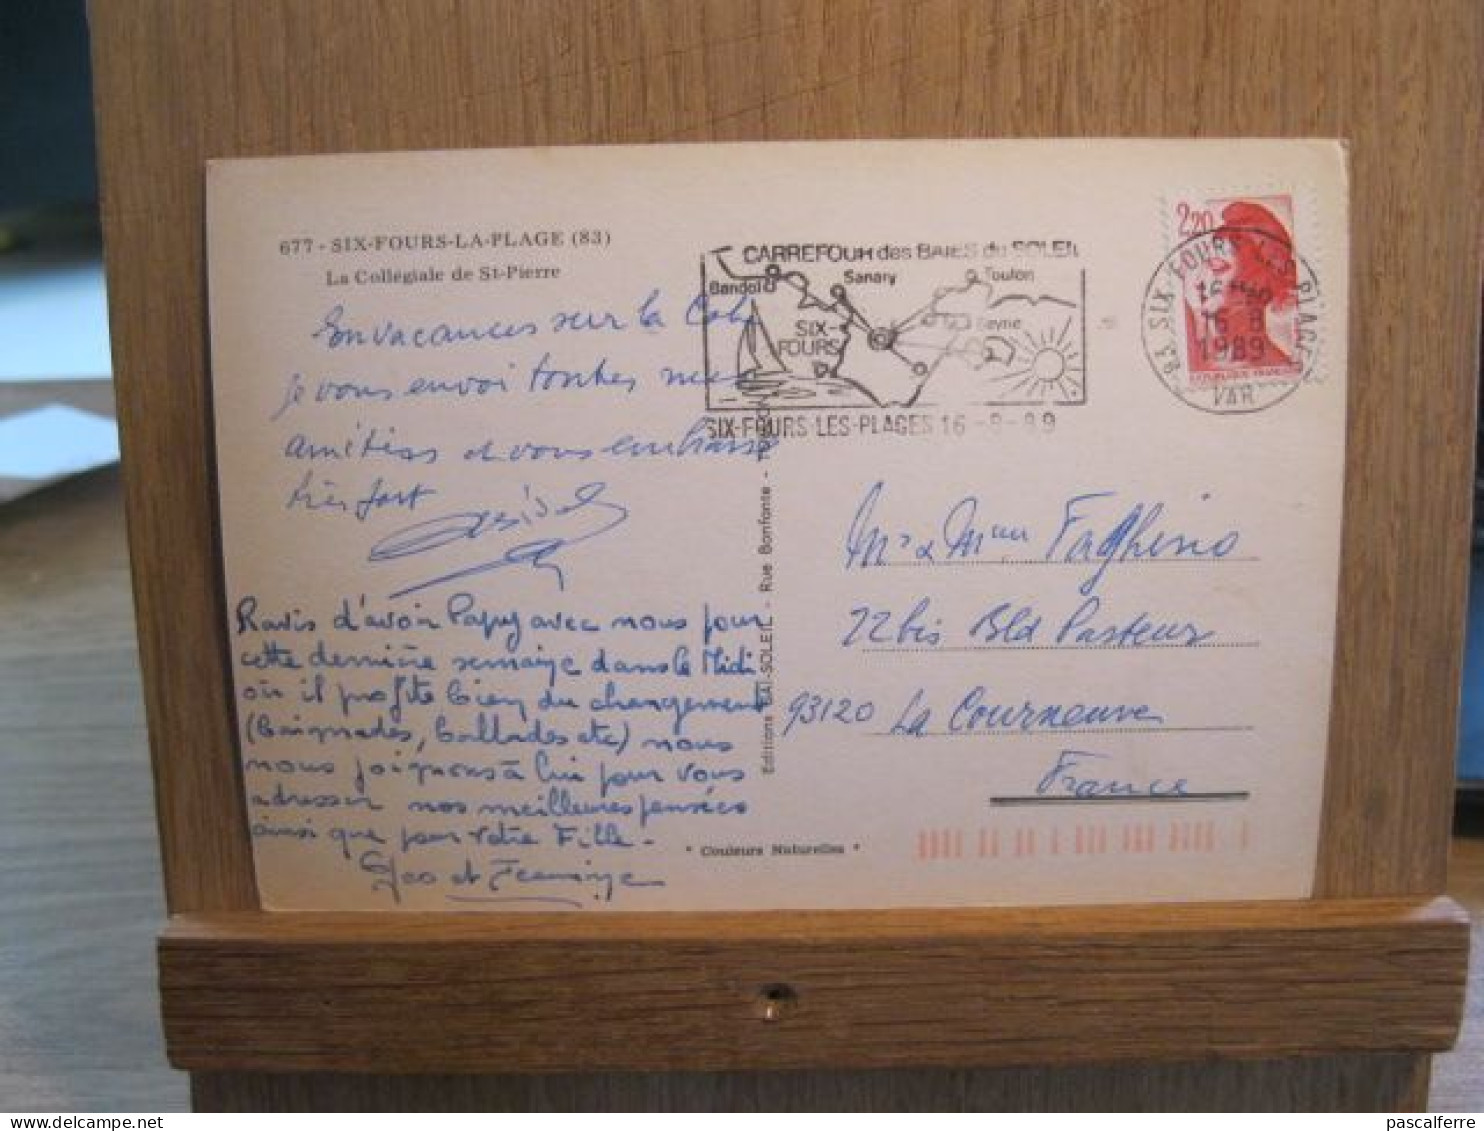 677 - SIX-FOURS-LA-PLAGE (83)
La Collégiale de St-Pierre
En vacances sur la Cote
je vous envoi toutes mes
amitiés et vous embrasse
très fort
Ravis d'avoir Papy avec nous pour
cette dernière semaine dans le Midi
où il profite bien du changement
(baignades, ballades etc) nous
nous joignons à lui pour vous
adresser nos meilleures pensées
ainsi que pour votre Fille -
Geo et
Editions BAI-SOLEIL - Rue Bonfante -
* Couleurs Naturelles *
CARREFOUR des BAIES du SOLEIL
Bandol
Sanary
Toulon
SIX-
FOURS
Seyne
SIX-FOURS-LES-PLAGES 16-8-89
2,20
REPUBLIQUE FRANCAISE
83 SIX-FOURS LES PLAGES
16 H
16 8
1989
VAR
Mr & Mme Faghino
22 bis Bld Pasteur
93120 La Courneuve
France
pascalferre